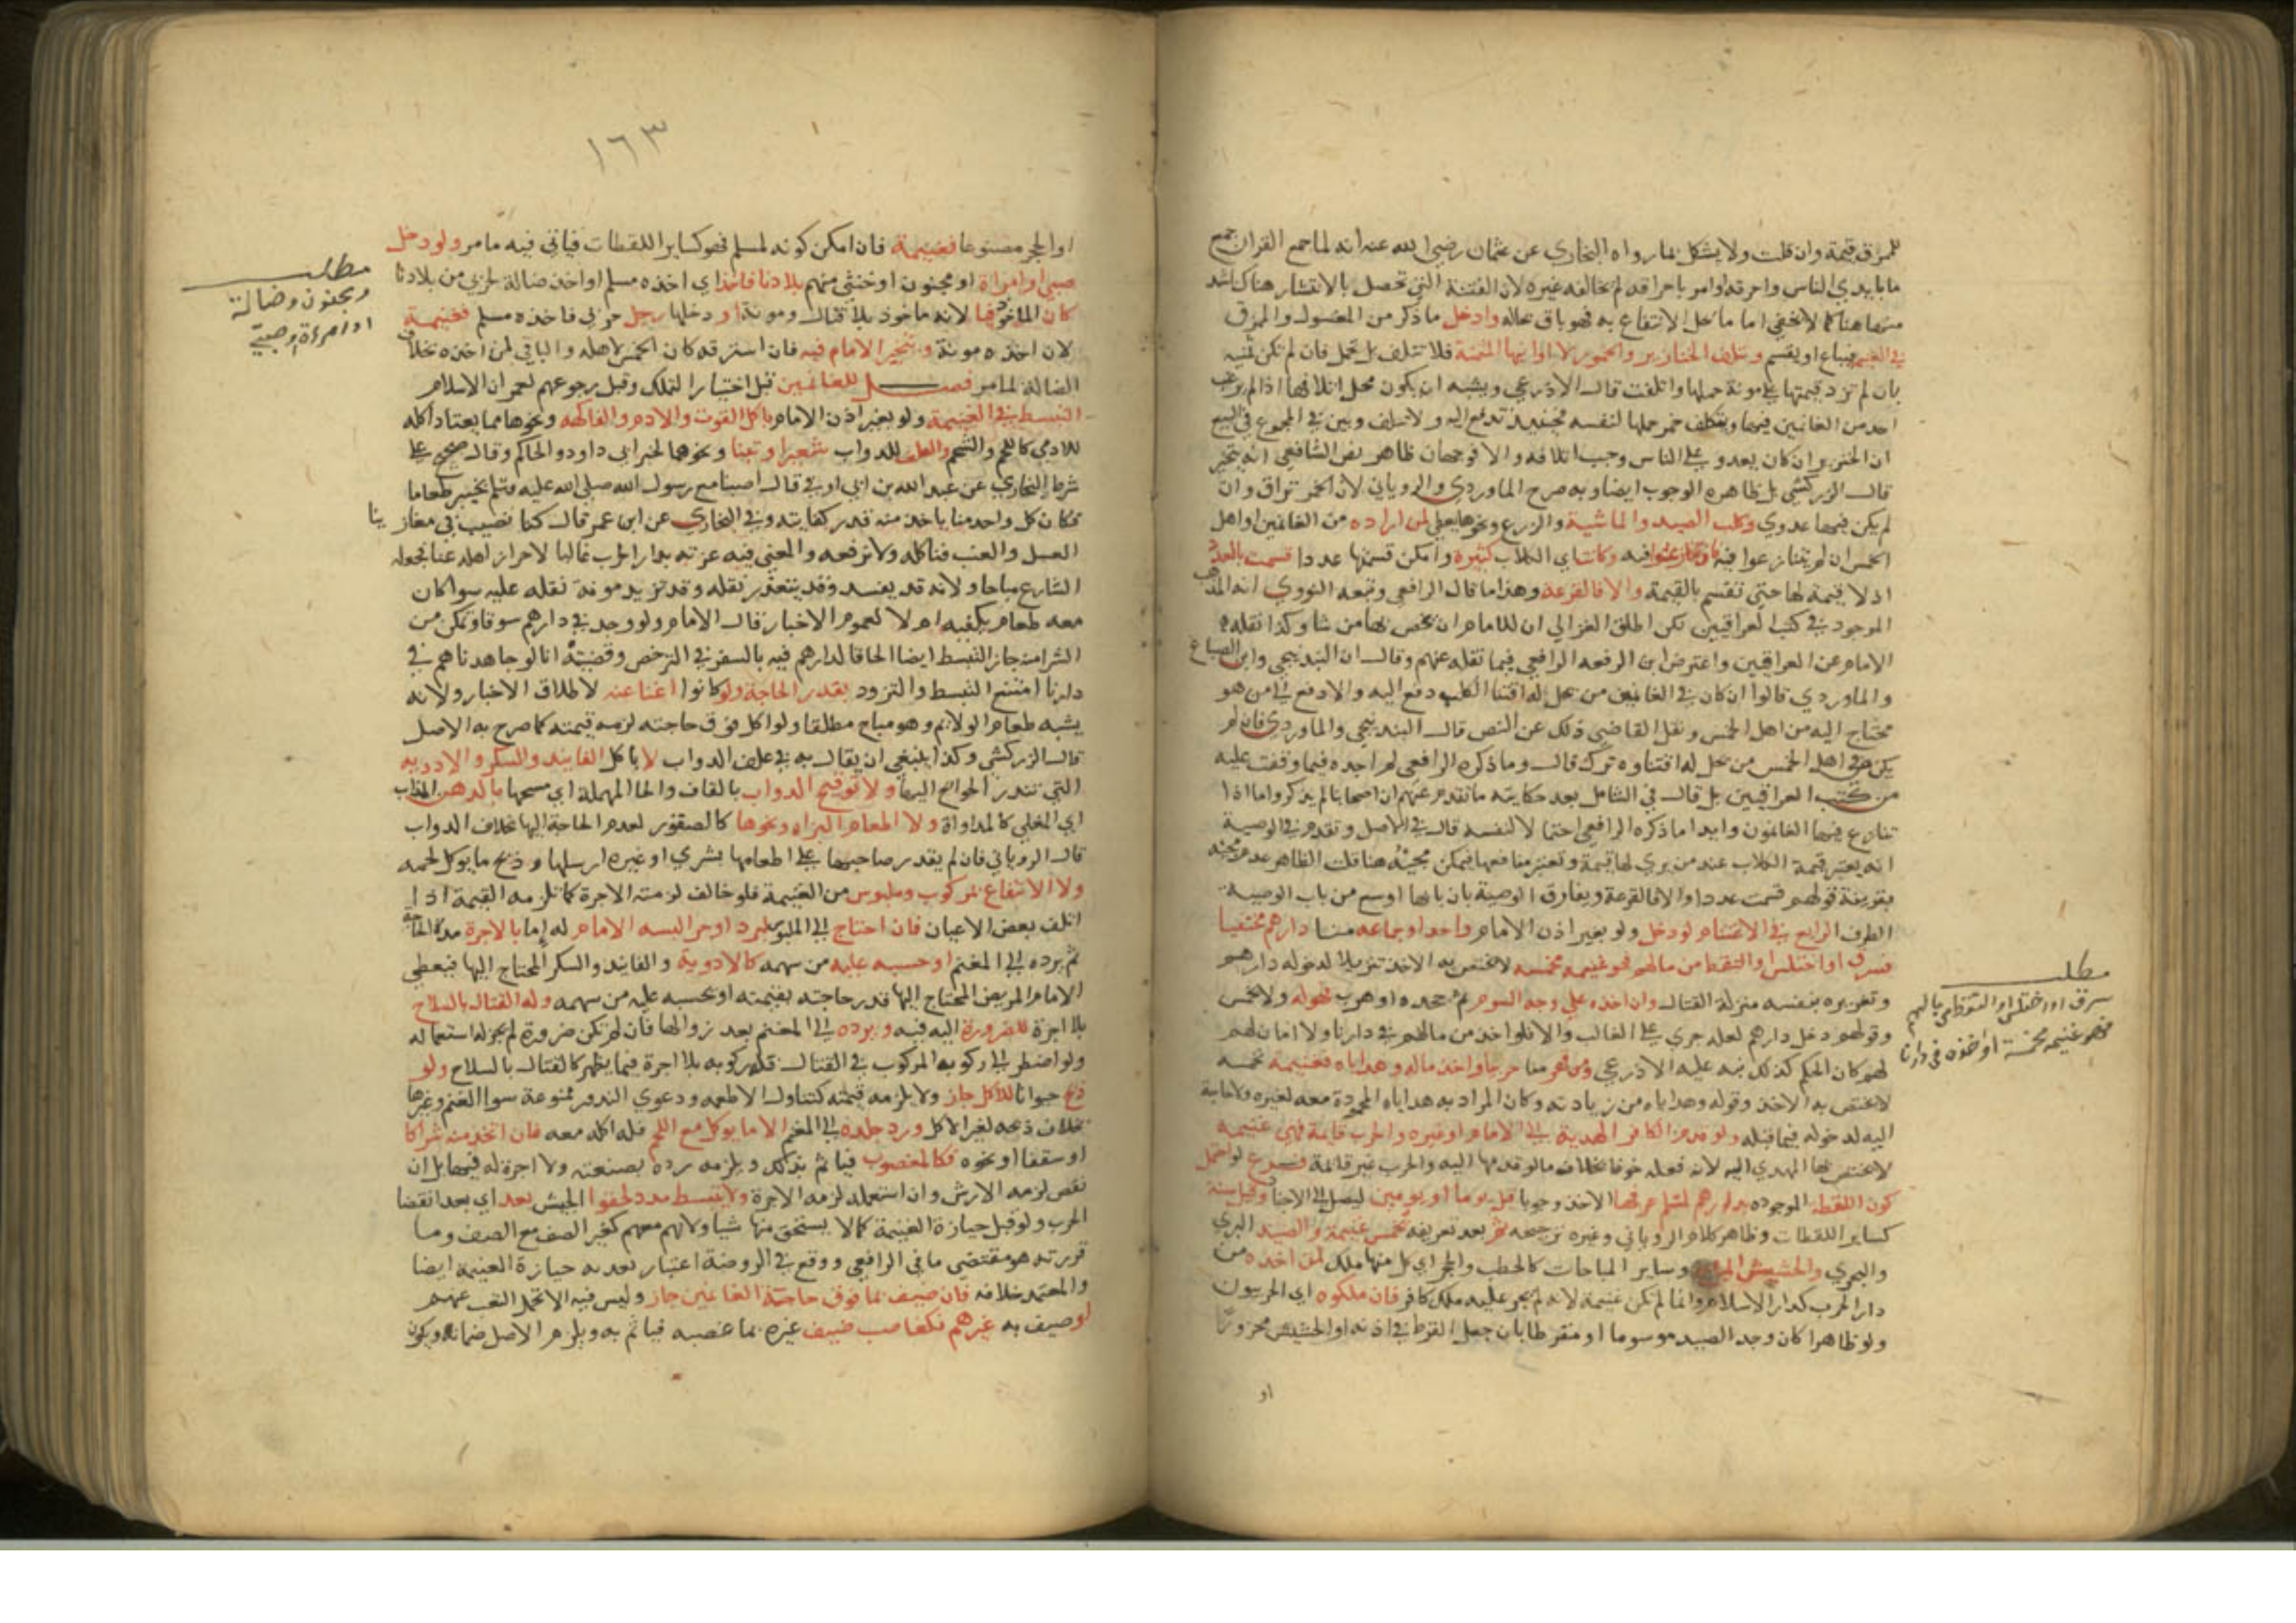 للممزق قيمة وان قلت ولا يشكل بما رواه البخاري عن عثمان رضي الله عنه انه لما جمع القران جمع
ما بايدي الناس واحرقه او امر باحراقه ولم يخالفه غيره لان الفتنة التي تحصل بالانتشار هناك اشد
منها هنا كما لا يخفي اما ما يحل الانتفاع به فهو باق بحاله وادخل ما ذكر من المغسول والممزق
في الغنيمة فيباع او يقسم وتتلف الخنازير والخمور لا اوانيها المثمنة فلا تتلف بل تحمل فان لم تكن ثمينة
بان لم تزد قيمتها علي مونة حملها واتلفت قال الاذرعي ويشبه ان يكون محل اتلافها اذا لم يرغب
احد من الغانمين فيها وبتكلف حملها لنفسه فحينئذ تدفع اليه ولا تتلف وبين في المجموع في البيع
ان الخنزير ان كان يعدو علي الناس وجب اتلافه والا فوجهان ظاهر نص الشافعي انه يتخير
قال الزركشي بل ظاهره الوجوب ايضا وبه صرح الماوردي والروياني لان الخمر تراق وان
لم يكن فيها عدوي وكلب الصيد والماشية والزرع ونحوها يعطي لمن اراده من الغانمين او اهل
الخمس ان لم يتنازعوا فيه فان تنازعوا فيه وكانت اي الكلاب كثيرة وامكن قسمتها عددا قسمت بالعدد
اذ لا قيمة لها حتي تقسم بالقيمة والا فالقرعة وهذا ما قال الرافعي وتبعه النووي انه المذهب
الموجود في كتب العراقيين لكن اطلق الغزالي ان للامام ان يخص بها من شا وكذا نقله
الامام عن العراقيين واعترض ابن الرفعه الرافعي فيما نقله عنهم وقال ان البندنيجي وابن الصباغ
والماوردي قالوا ان كان في الغانمين من يحل له اقتنا الكلب دفع اليه والا دفع الي من هو
محتاج اليه من اهل الخمس ونقل القاضي ذلك عن النص قال البندنيجي والماوردي فان لم
يكن في اهل الخمس من يحل له اقتناوه ترك قال وما ذكره الرافعي لم اجده فيما وقفت عليه
من كتب العراقيين بل قال في الشامل بعد حكايته ما تقدم عنهم ان اصحابنا لم يذكروا ما اذا
تنازع فيها الغانمون وابدا ما ذكره الرافعي احتمالا لنفسه قال في الاصل وتقدم في الوصية
انه يعتبر قيمة الكلاب عند من يري لها قيمة وتعتبر منافعها فيمكن مجيئه هنا قلت الظاهر عدم مجيئه
بقرينة قولهم قسمت عددا والا فالقرعة ويفارق الوصية بان بابها اوسع من باب الوصية
الطرف الرابع في الاغتنام لو دخل ولو بغير اذن الامام واحد او جماعه منا دارهم مختفيا
فسرق او اختلس او التقط من مالهم فهو غنيمه مخمسه لا يختص به الاخذ تنزيلا لدخوله دارهم
وتغريره بنفسه منزلة القتال وان اخذه علي وجه السوم ثم جحده او هرب فهو له ولا يخمس
وقولهم دخل دارهم لعله جري علي الغالب والا فلو اخذ من مالهم في دارنا ولا امان لهم
لهم كان الحكم كذلك نبه عليه الاذرعي ومن قهر منا حربيا واخذ ماله وهداياه فغنيمة مخمسه
لا يختص به الاخذ وقوله وهداياه من زيادته وكان المراد به هداياه المحمولة معه لغيره ولا حاجة
اليه لدخوله فيما قبله ولو قدم الكافر الهدية الي الامام او غيره والحرب قائمة فهي غنيمة
لا يختص بها المهدي اليه لانه فعله خوفا بخلاف ما لو قدمها اليه والحرب غير قائمة فرع لو احتمل
كون اللقطة الموجودة بدارهم لمسلم عرفها الاخذ وجوبا قيل يوما او يومين ليصل الي الاجناد وقيل سنة
كساير اللقطات وظاهر كلام الروياني وغيره ترجيحه ثم بعد تعريفه تخمس غنيمة والصيد البري
والبحري والحشيش المباح وساير المباحات كالحطب والحجر اي كل منها ملك لمن اخذه من
دار الحرب كدار الاسلام وانما لم تكن غنيمة لانه لم يجر عليه ملك كافر فان ملكوه اي الحربيون
ولو ظاهرا كان وجد الصيد موسوما او مقرطا بان جعل القرط في اذنه او الحشيش مجزوزا
او
مطلب
سرق او اختلس او التقط من مالهم
فهو غنيمه مخمسة او اخذه في دارنا
١٦٣
او الحجر مصنوعا فغنيمة فان امكن كونه لمسلم فهو كساير اللقطات فياتي فيه ما مر ولو دخل
صبي او امراة او مجنون او خنثي منهم بلادنا فاخذ اي اخذه مسلم او اخذ ضالة لحربي من بلادنا
كان الماخوذ فيا لانه ماخوذ بلا قتال ومونة او دخلها رجل حربي فاخذه مسلم فغنيمة
لان لاخذه مونة ويتخير الامام فيه فان استرقه كان الخمس لاهله والباقي لمن اخذه بخلاف
الضالة لما مر فصل للغانمين قبل اختيار التملك وقبل رجوعهم لعمران الاسلام
التبسط في الغنيمة ولو بغير اذن الامام باكل القوت والادم والفاكهه ونحوها مما يعتاد اكله
للادمي كاللحم والشحم والعلف للدواب شعيرا وتبنا ونحوهما لخبر ابي داود والحاكم وقال صحيح علي
شرط البخاري عن عبد الله بن ابي اوفي قال اصبنا مع رسول الله صلي الله عليه وسلم بخيبر طعاما
فكان كل واحد منا ياخذ منه قدر كفايته وفي البخاري عن ابن عمر قال كنا نصيب في مغازينا
العسل والعنب فناكله ولا نرفعه والمعني فيه عزته بدار الحرب غالبا لاحراز اهله عنا فجعله
الشارع مباحا ولانه قد يفسد وقد يتعذر نقله وقد تزيد مونة نقله عليه سوا كان
معه طعام يكفيه ام لا لعموم الاخبار قال الامام ولو وجد في دارهم سوقا وتمكن من
الشرا منه جاز التبسط ايضا الحاقا لدارهم فيه بالسفر في الترخص وقضيته انا لو جاهدناهم في
دارنا امتنع التبسط والتزود بقدر الحاجة ولو كانوا اغنيا عنه لاطلاق الاخبار ولانه
يشبه طعام الولائم وهو مباح مطلقا ولو اكل فوق حاجته لزمه قيمته كما صرح به الاصل
قال الزركشي وكذا ينبغي ان يقال به في علف الدواب لا باكل الفانيذ والسكر والادوية
التي تندر الحواج اليها ولا توقيح الدواب بالقاف والحا المهملة اي مسحها بالدهن المذاب
اي المغلي كالمداواة ولا اطعام البزاه ونحوها كالصقور لعدم الحاجة اليها بخلاف الدواب
قال الروياني فان لم يقدر صاحبها علي اطعامها بشري او غيره ارسلها وذبح ما يوكل لحمه
ولا الانتفاع بمركوب وملبوس من الغنيمة فلو خالف لزمته الاجرة كما تلزمه القيمة اذا
اتلف بعض الاعيان فان احتاج الي الملبوس لبرد او حر البسه الامام له اما بالاجرة مدة الحاجة
ثم يرده الي المغنم او حسبه عليه من سهمه كالادوية والفانيذ والسكر المحتاج اليها فيعطي
الامام المريض المحتاج اليها قدر حاجته بقيمته او يحسبه عليه من سهمه وله القتال بالسلاح
بلا اجرة للضرورة اليه فيه ويرده الي المغنم بعد زوالها فان لم تكن ضرورة لم يجز له استعماله
ولو اضطر الي ركوبه المركوب في القتال فله ركوبه بلا اجرة فيما يظهر كالقتال بالسلاح ولو
ذبح حيوانا للاكل جاز ولا يلزمه قيمته كتناول الاطعمه ودعوي الندور ممنوعة سوا الغنم وغيرها
بخلاف ذبحه لغير الاكل ورد جلده الي المغنم الا ما يوكل مع اللحم فله اكله معه فان اتخذ منه شراكا
او سقفا او نحوه فكالمغصوب فياثم بذلك ويلزمه رده بصنعته ولا اجرة له فيها بل ان
نقص لزمه الارش وان استعمله لزمه الاجرة ولا يتبسط مدد لحقوا الجيش بعد اي بعد انقضا
الحرب ولو قبل حيازة الغنيمة كما لا يستحق منها شيا ولانهم معهم كغير الضيف مع الضيف وما
قررته هو مقتضي ما في الرافعي ووقع في الروضة اعتبار بعديه حيازة الغنيمة ايضا
والمعتمد خلافه فان ضيف بما فوق حاجته الغانمين جاز وليس فيه الا تحمل التعب عنهم
لو ضيف به غيرهم فكغاصب ضيف غيره بما غصبه فياثم به ويلزم الاصل ضمانه ويكون
مطلب
ومجنون وضالة
او امرءة او صبي